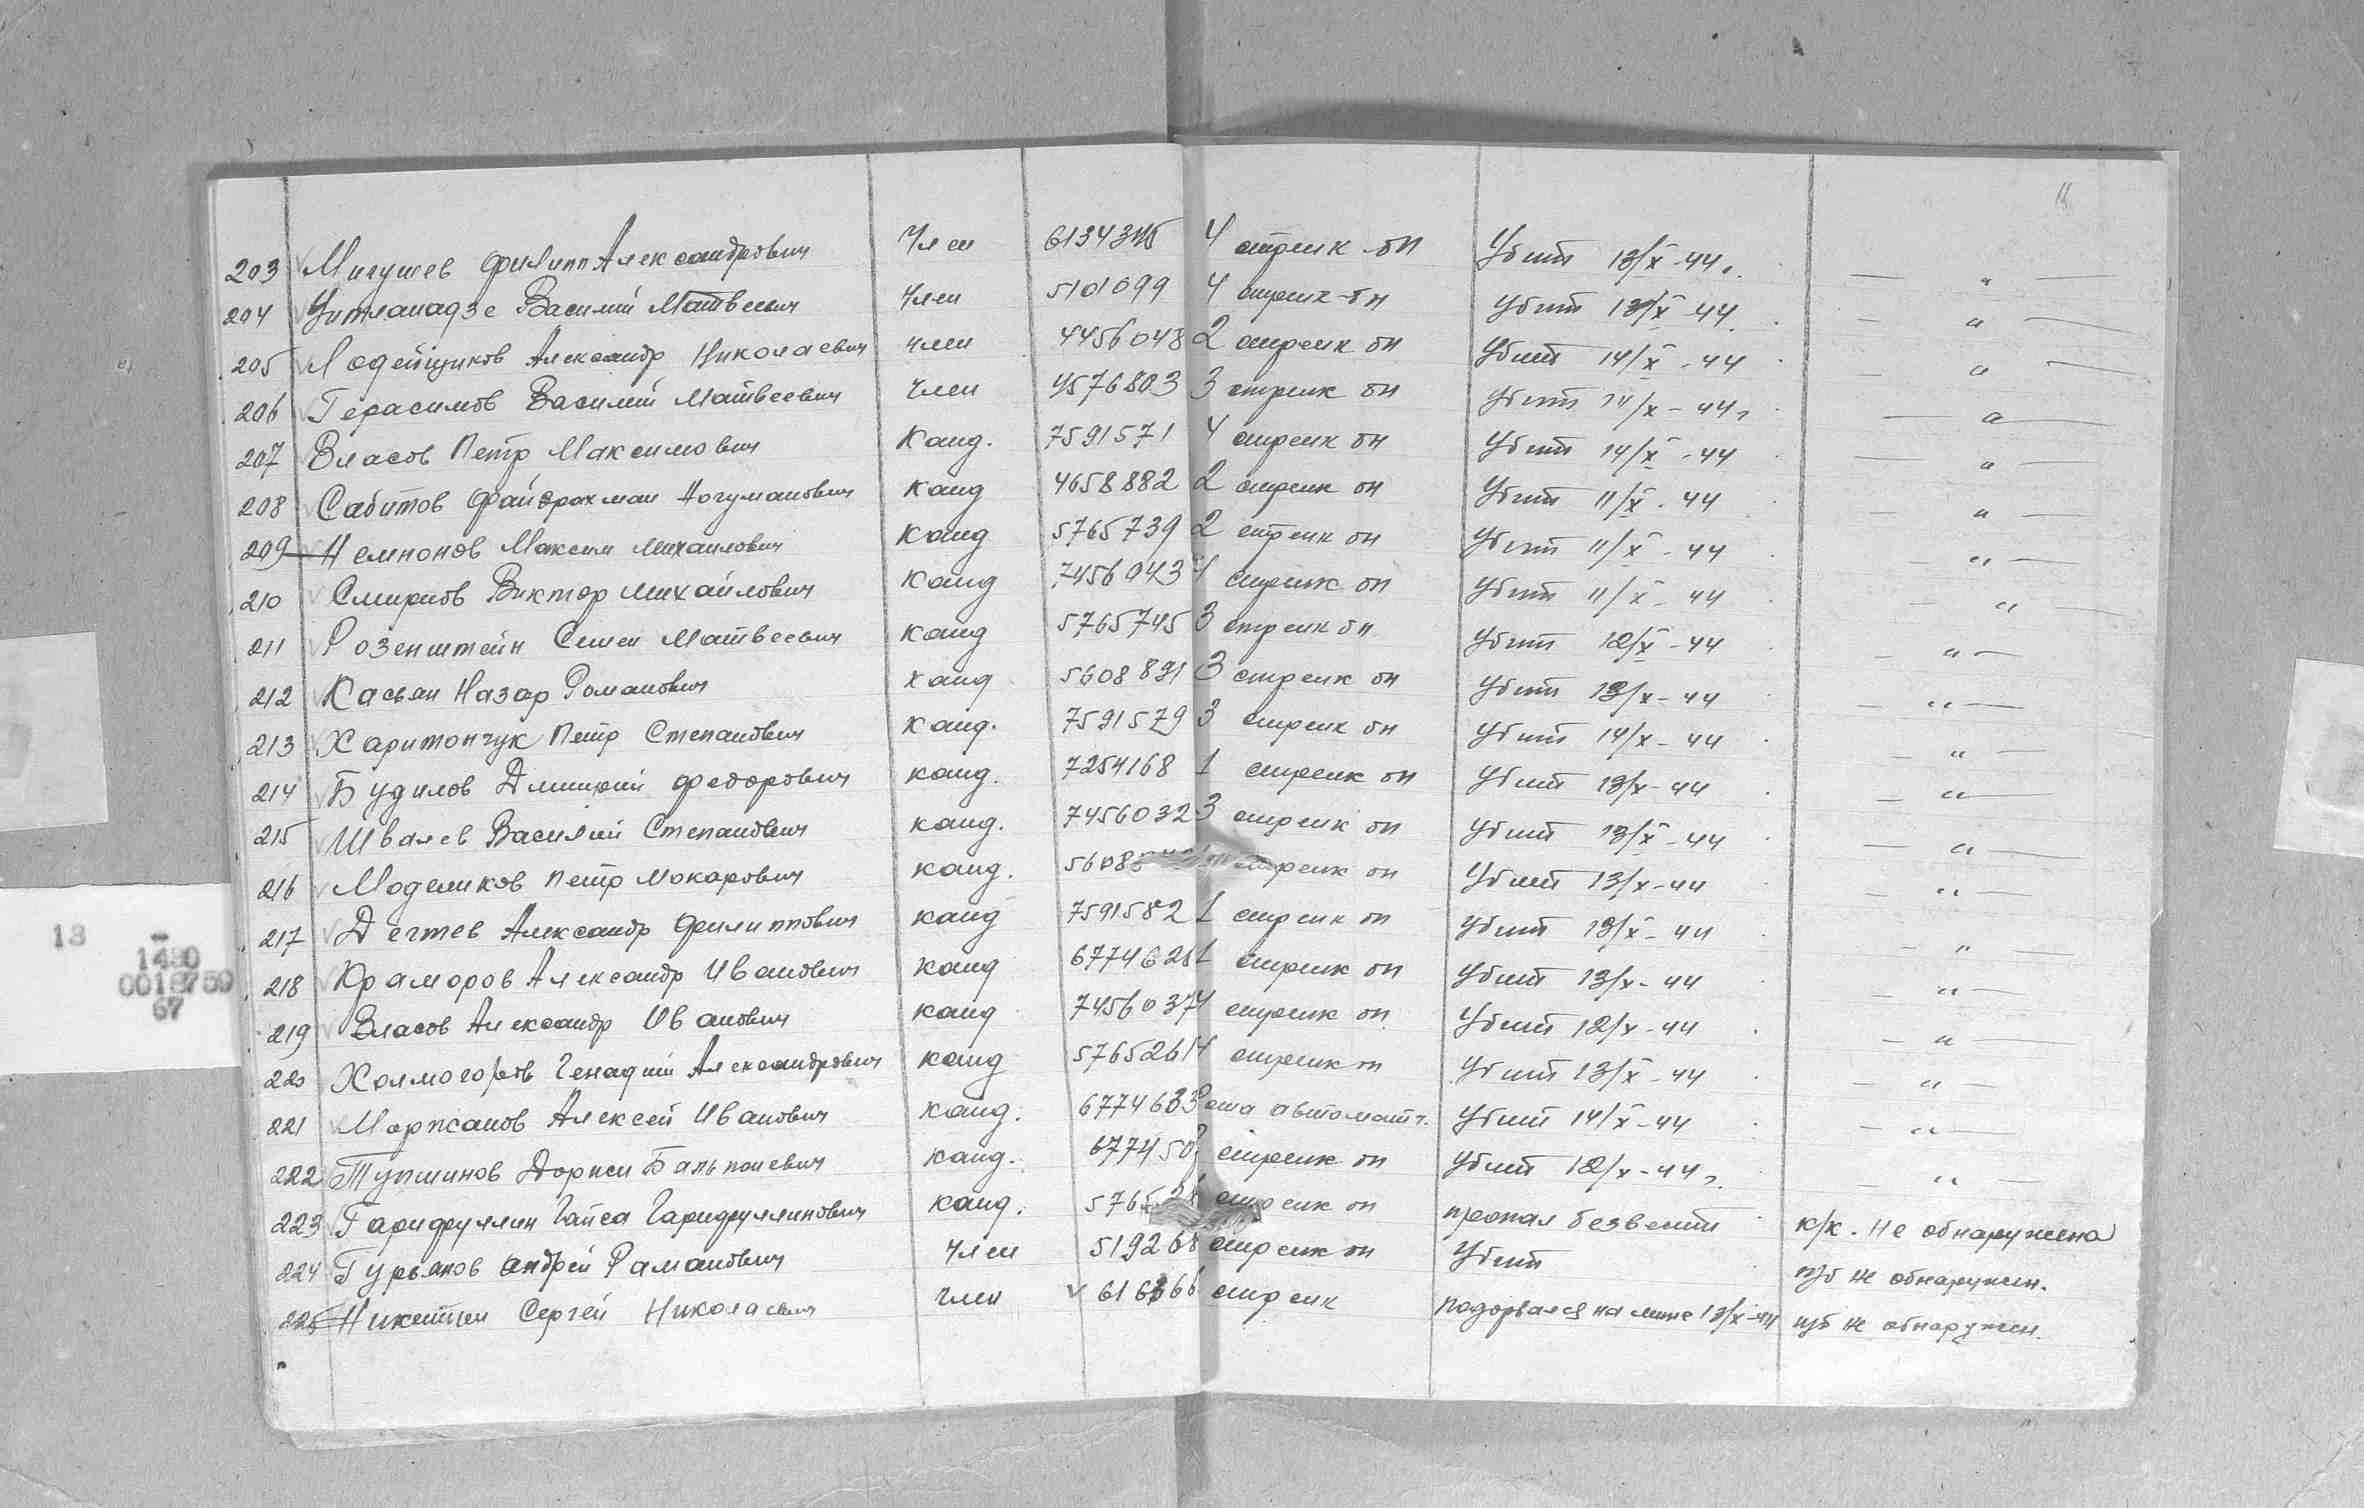 11
203 Мигушев Филипп Александрович Член 6134345 4 стрелк бн Убит 13/X-44г. — " —
204 Василий Матвеевич Член 5101099 4 стрелк бн Убит 13/X-44 — " —
205 Лодейщиков Александр Николаевич член 4456048 2 стрелк бн Убит 14/X-44 — " —
206 Герасимов Василий Матвеевич Член 4576803 3 стрелк бн Убит 14/X-44г — " —
207 Власов Петр Максимович Канд. 7591571 4 стрелк бн Убит 14/X-44 — " —
208 Сабитов Файзрахман Ногуманович Канд 4658882 2 стрелк бн Убит 11/X-44 — " —
209 Немнонов Максим Михаилович Канд 5765739 2 стрелк бн Убит 11/X-44 — " —
210 Смирнов Виктор Михайлович Канд 7456043 4 стрелк бн Убит 11/X-44 — " —
211 Розенштейн Семен Матвеевич канд 5765745 3 стрелк бн Убит 12/X-44 — " —
212 Касьян Назар Романович канд 5608891 3 стрелк бн Убит 13/X-44 — " —
213 Харитончук Петр Степанович канд. 7591579 3 стрелк бн Убит 14/X-44 — " —
214 Будилов Дмитрий Федорович канд. 7254168 1 стрелк бн Убит 13/X-44 — " —
215 Швалев Василий Степанович канд. 7456032 3 стрелк бн Убит 13/X-44 — " —
216 Моделиков Петр Макарович канд. 5608 стрелк бн Убит 13/X-44 — " —
217 Дегтев Александр Филиппович канд 7591582 1 стрелк бн Убит 13/X-44 — " —
218 Краморов Александр Иванович канд 6774628 1 стрелк бн Убит 13/X-44 — " —
219 Власов Александр Иванович канд 7456037 4 стрелк бн Убит 12/X-44 — " —
220 Холмогоров Генадий Александрович канд 5765261 4 стрелк бн Убит 13/X-44 — " —
221 Маржанов Алексей Иванович канд. 6774633 автоматч. Убит 14/X-44 — " —
222 Тупшинов Доржи Бальжиевич канд. 677450 стрелк бн Убит 12/X-44г. — " —
223 Гарифуллин Гайса Гарифуллинович канд. 5765 стрелк бн пропал безвести к/к. Не обнаружена
224 Гурьянов Андрей Раманович Член 519268 стрелк бн Убит п/б не обнаружен.
225 Никитин Сергей Николаевич член 616366 стрелк подорвался на мине 13/X-44 п/б не обнаружен.
13
1430
0018759
67